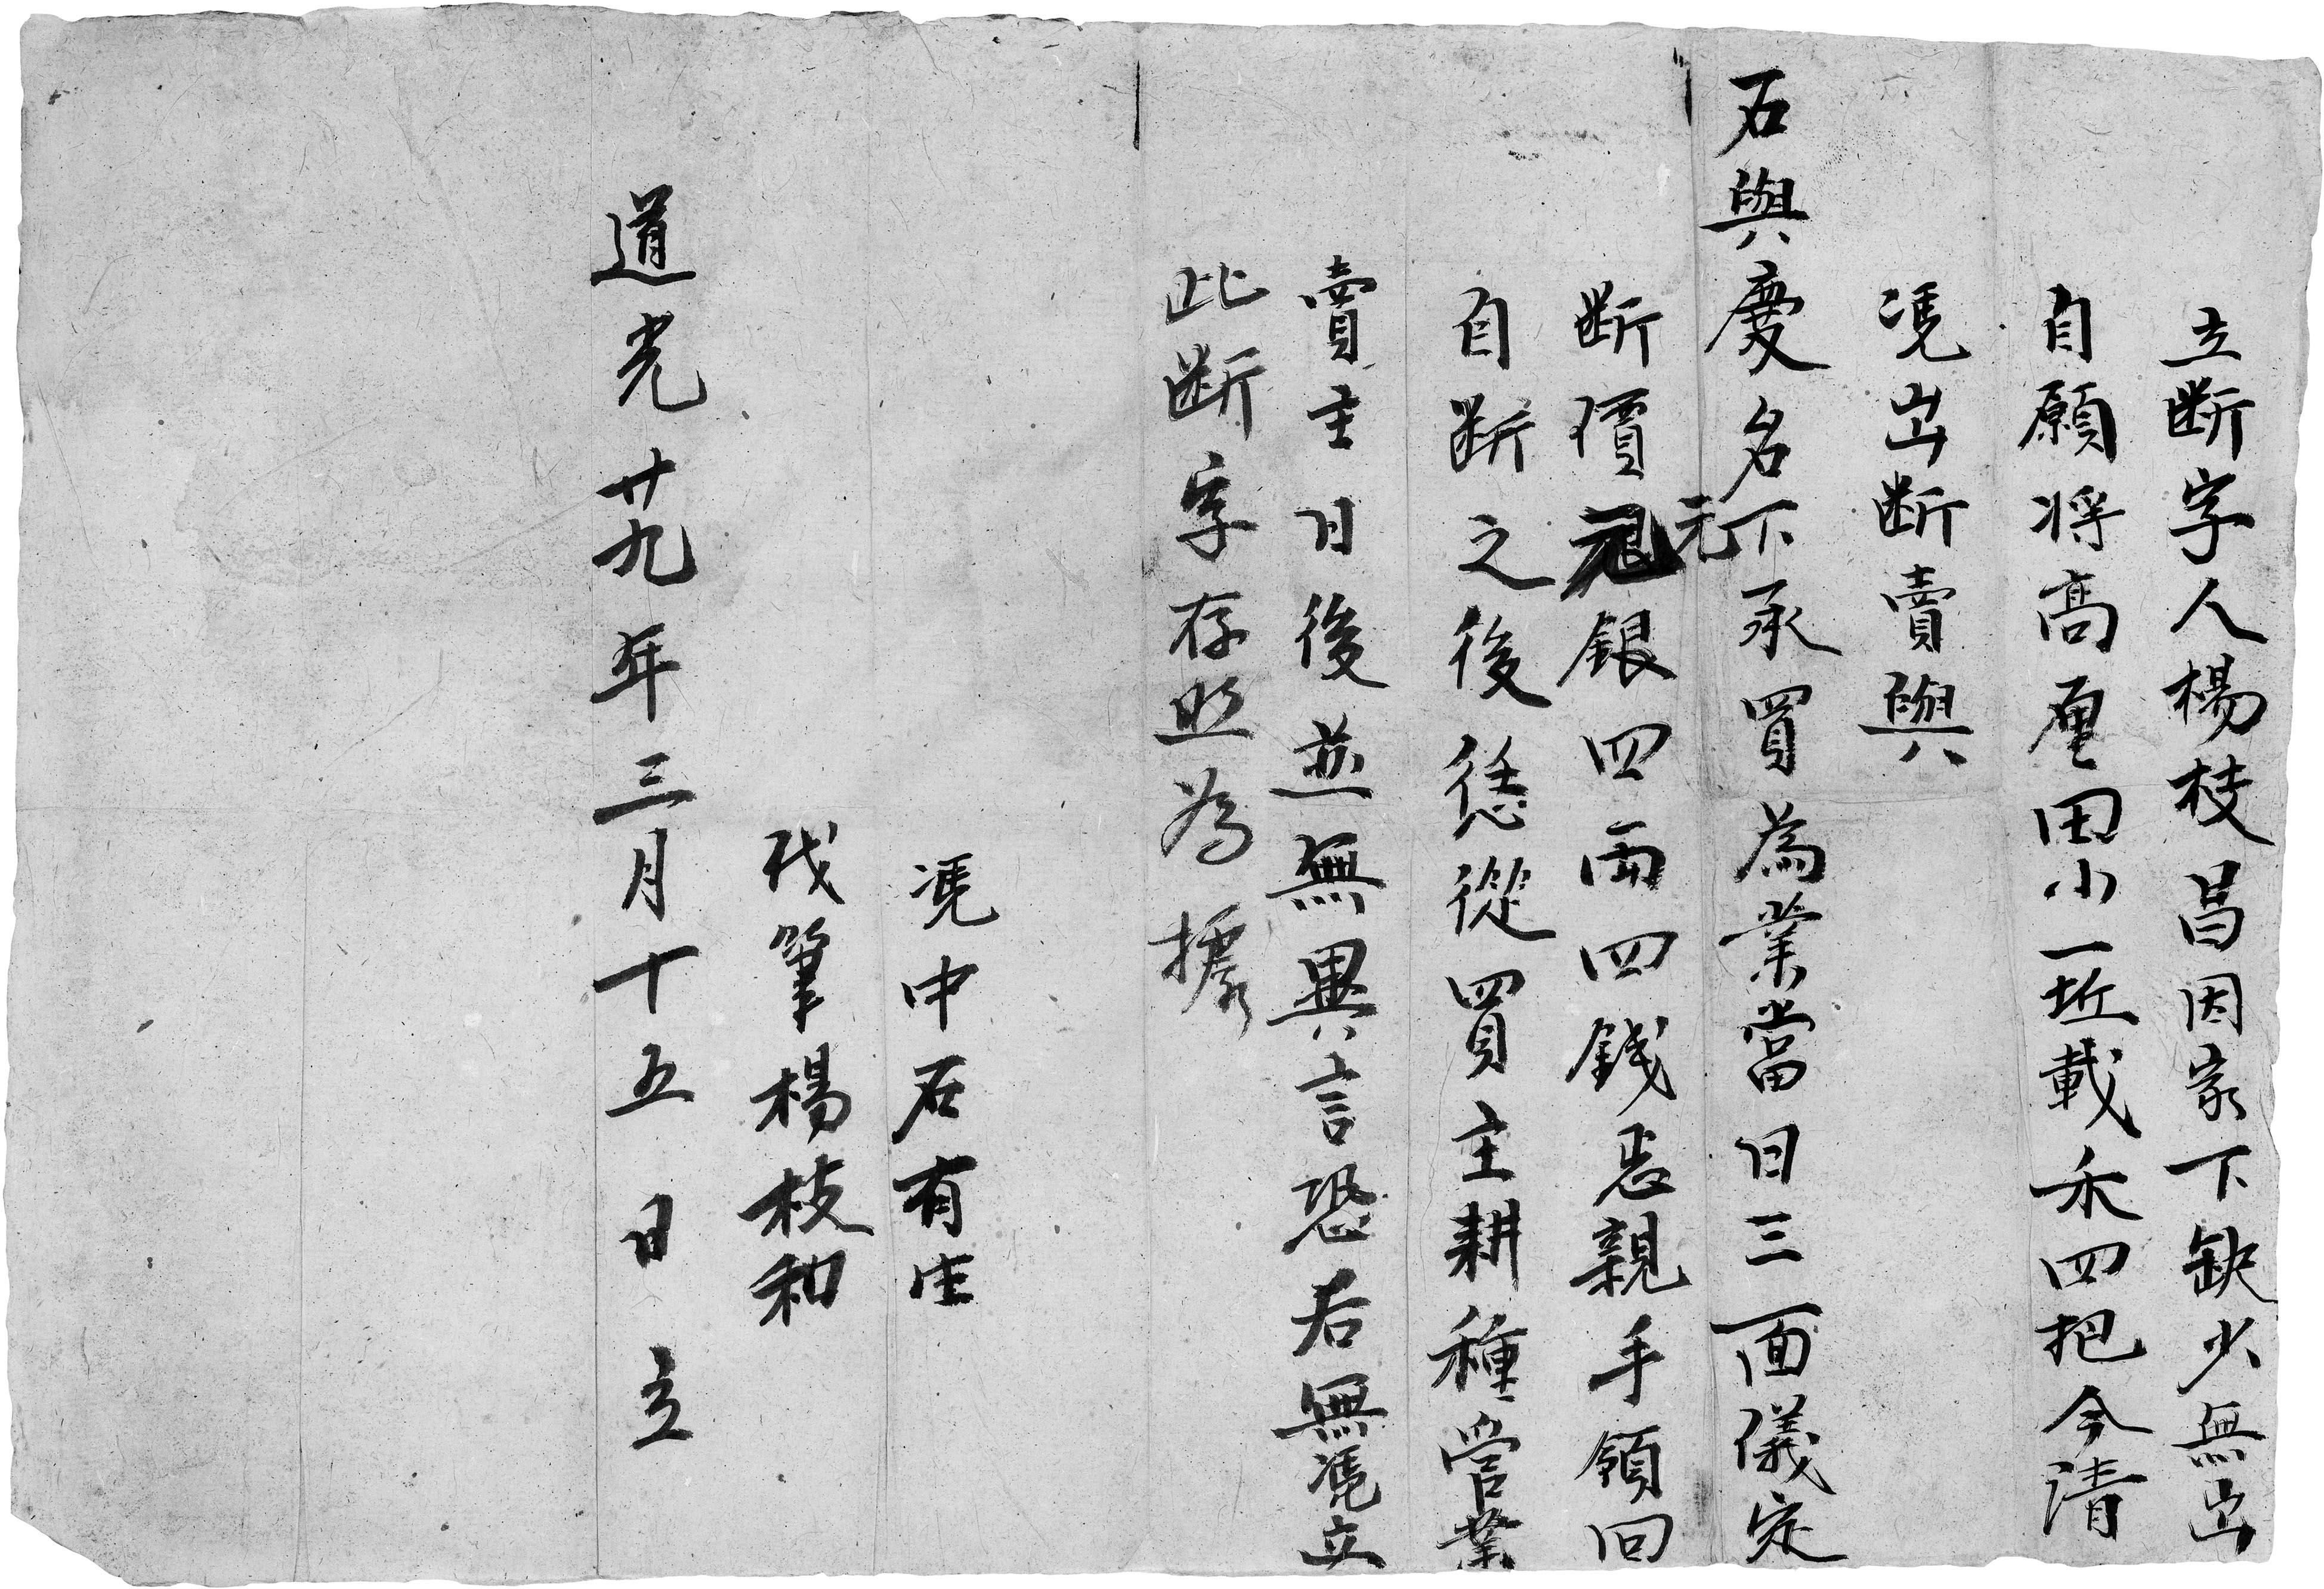 立断字人楊枝昌因家下缺少無出
自願将高厘田小一坵載禾四把今請
凴出断賣與
石與慶名下承買為業當日三面儀定
断價元銀四両四錢㤙親手領回
自断之後恁從買主耕種管業
賣主日後並無異言恐后無凴立
此断字存照為據
凴中石有生
代筆楊枝和
道光廿九年三月十五日立